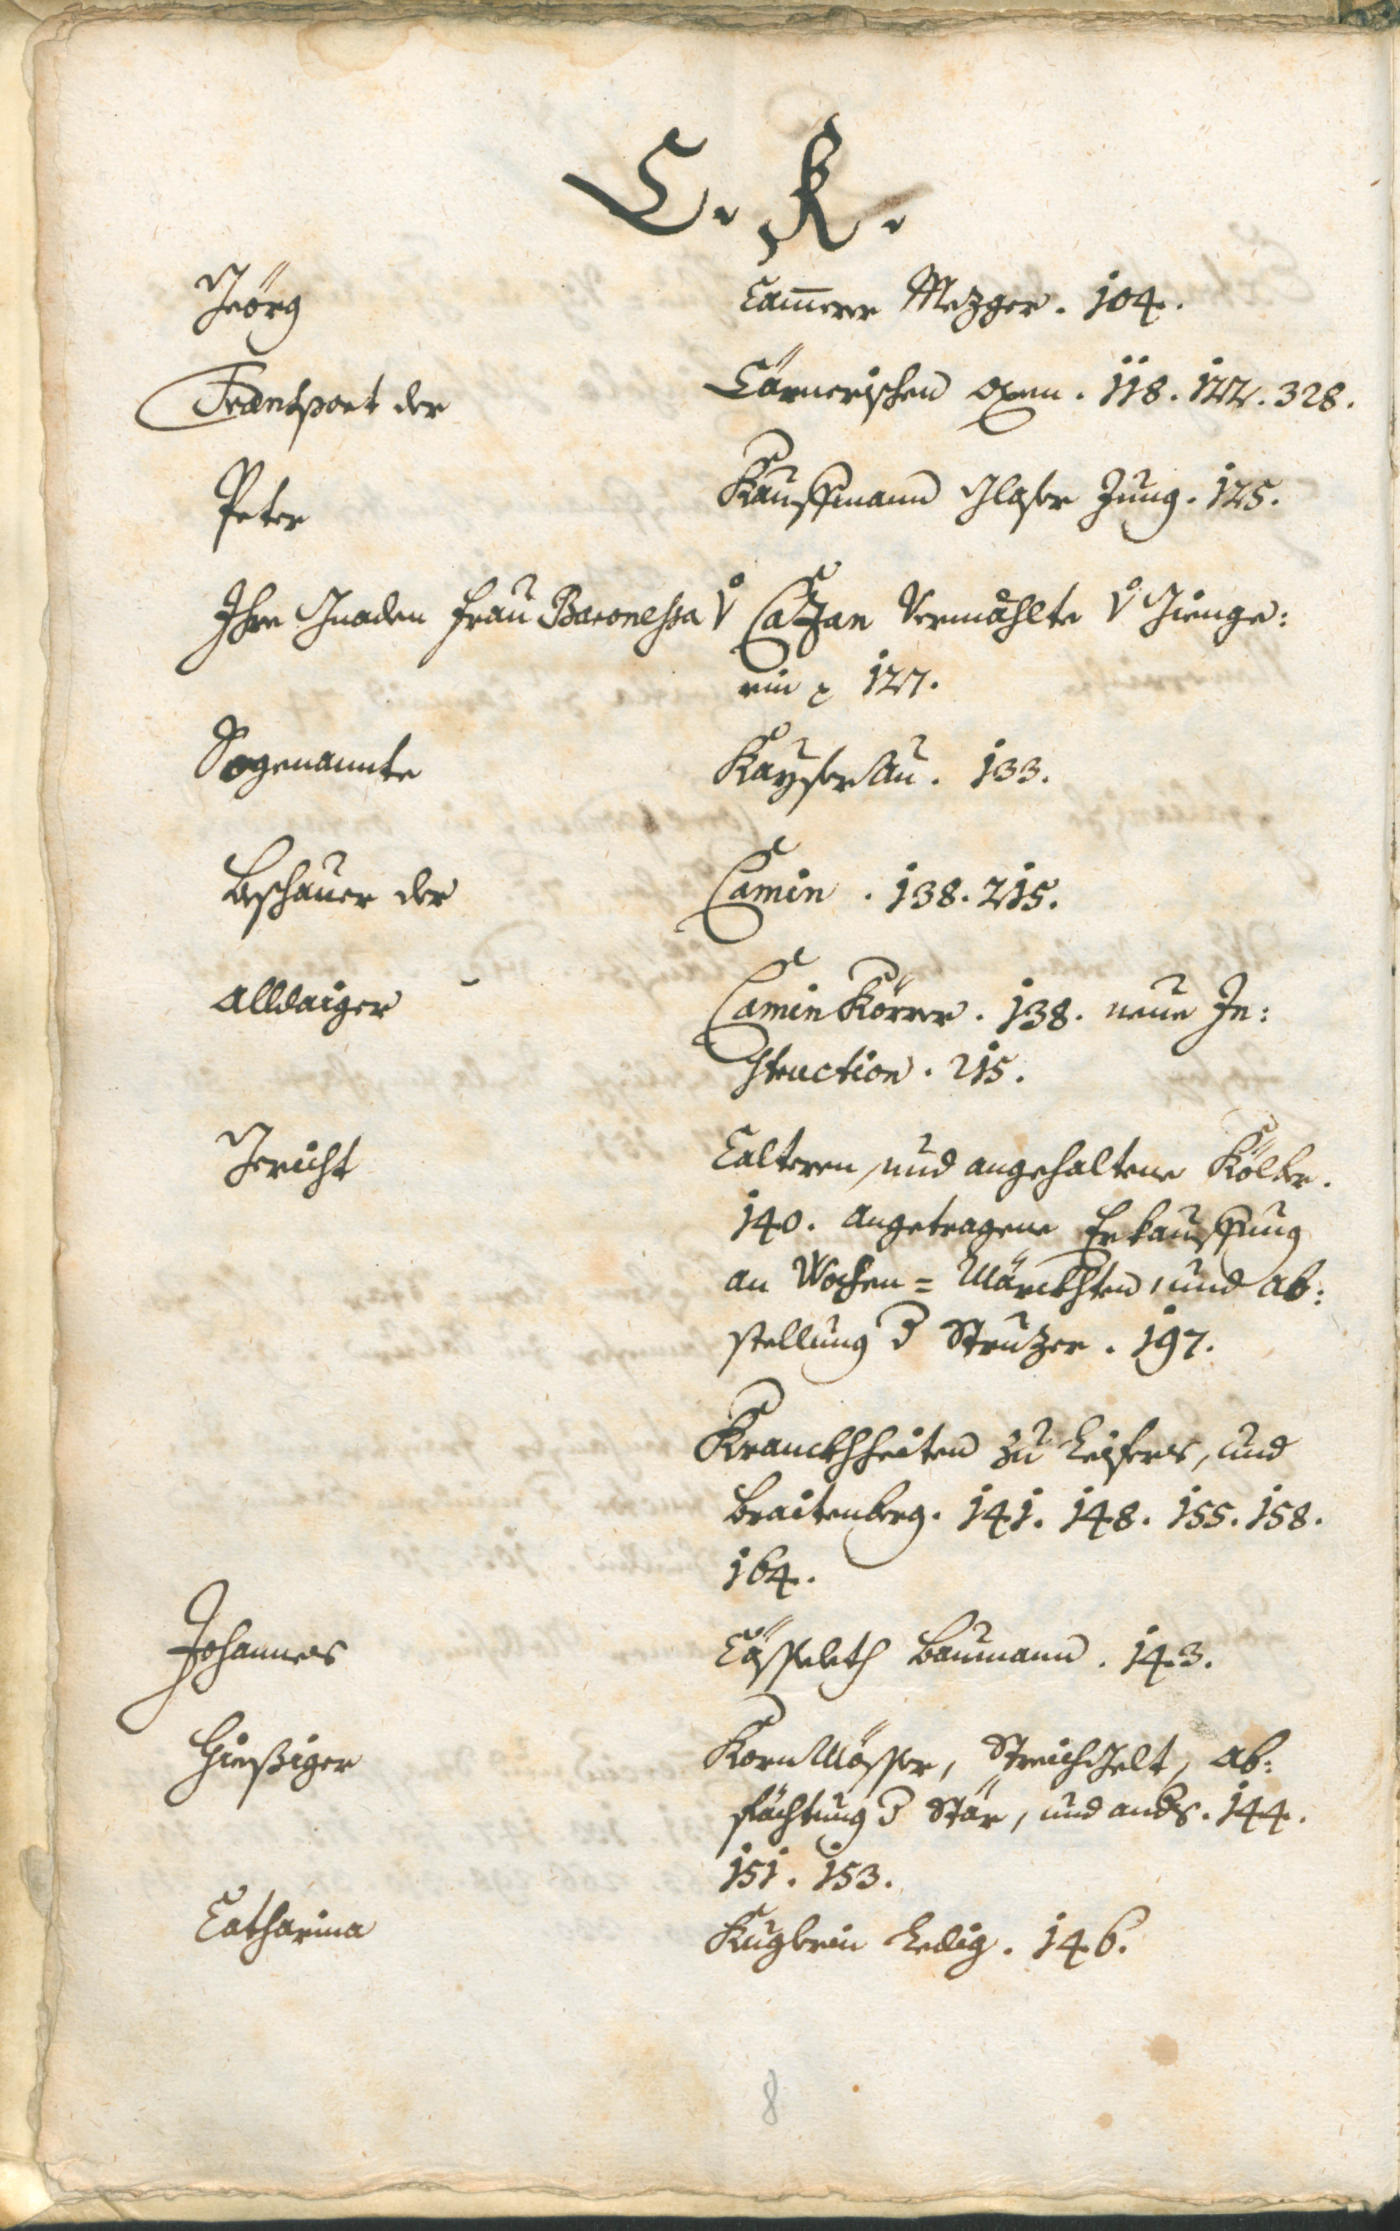 C. K.
Jeörg Cam̄erer Mezger. 104.
Transport der Cärnerischen oxen. 118. 122. 328.
Peter Kauffmann Glaser Jung. 125.
Ihre Gnaden Frau Baronessa v Cazan Vermählte v Gienge:
rin 127.
Sogenannte Kayser Au. 133.
Bschauer der Camin. 138. 215.
alldaiger Camin Körrer. 138. neue In:
struction. 215.
Gericht Calteren, und angehaltene Kölber.
140. angetragene Erkauffung
an Wochen = Märckhten, und ab:
stellung d Stuzer. 197.
Kranckhheiten zu Leifers, und
Braitenberg. 141. 148. 155. 158.
164.
Johannes Cässeleth Baumann. 143.
Hiesßiger Korn Mösser, Streich Gelt, ab:
fächtung d Stär, und ands. 144.
151. 153.
Catharina Kuglerin Ledig. 146.
8